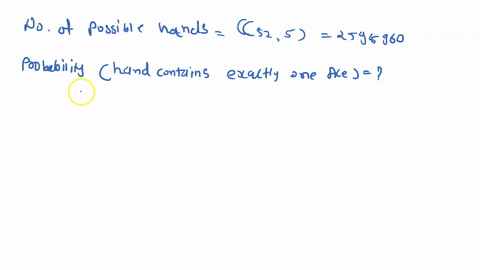 No. of possible hands = C(52, 5) = 2598960
Probability (hand contains exactly one Ace) = ?